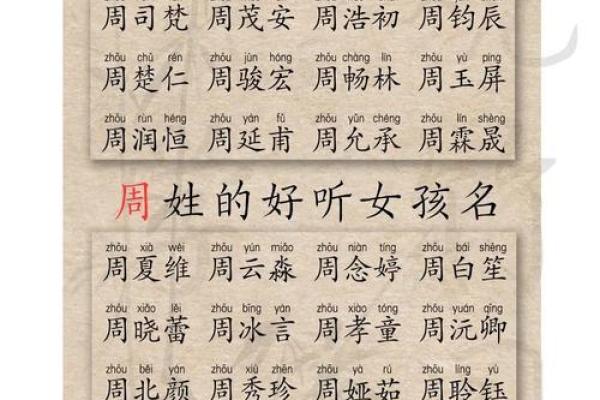 周司梵 周茂安 周浩初 周钧辰
zhōu chǔ rén zhōu jùn hóng zhōu chàng lín zhōu yù píng
周楚仁 周骏宏 周畅林 周玉屏
zhōu rùn héng zhōu yán fǔ zhōu yǔn chéng zhōu lín shèng
周润恒 周延甫 周允承 周霖晟
周姓的好听女孩名
zhōu xià wéi zhōu yún miǎo zhōu niàn tíng zhōu bái shēng
周夏维 周云淼 周念婷 周白笙
zhōu xiǎo lěi zhōu bīng yán zhōu xiào tóng zhōu yuán qīng
周晓蕾 周冰言 周孝童 周沅卿
zhōu běi yán zhōu xiù zhēn zhōu yà rú zhōu líng yù
周北颜 周秀珍 周娅茹 周聆钰